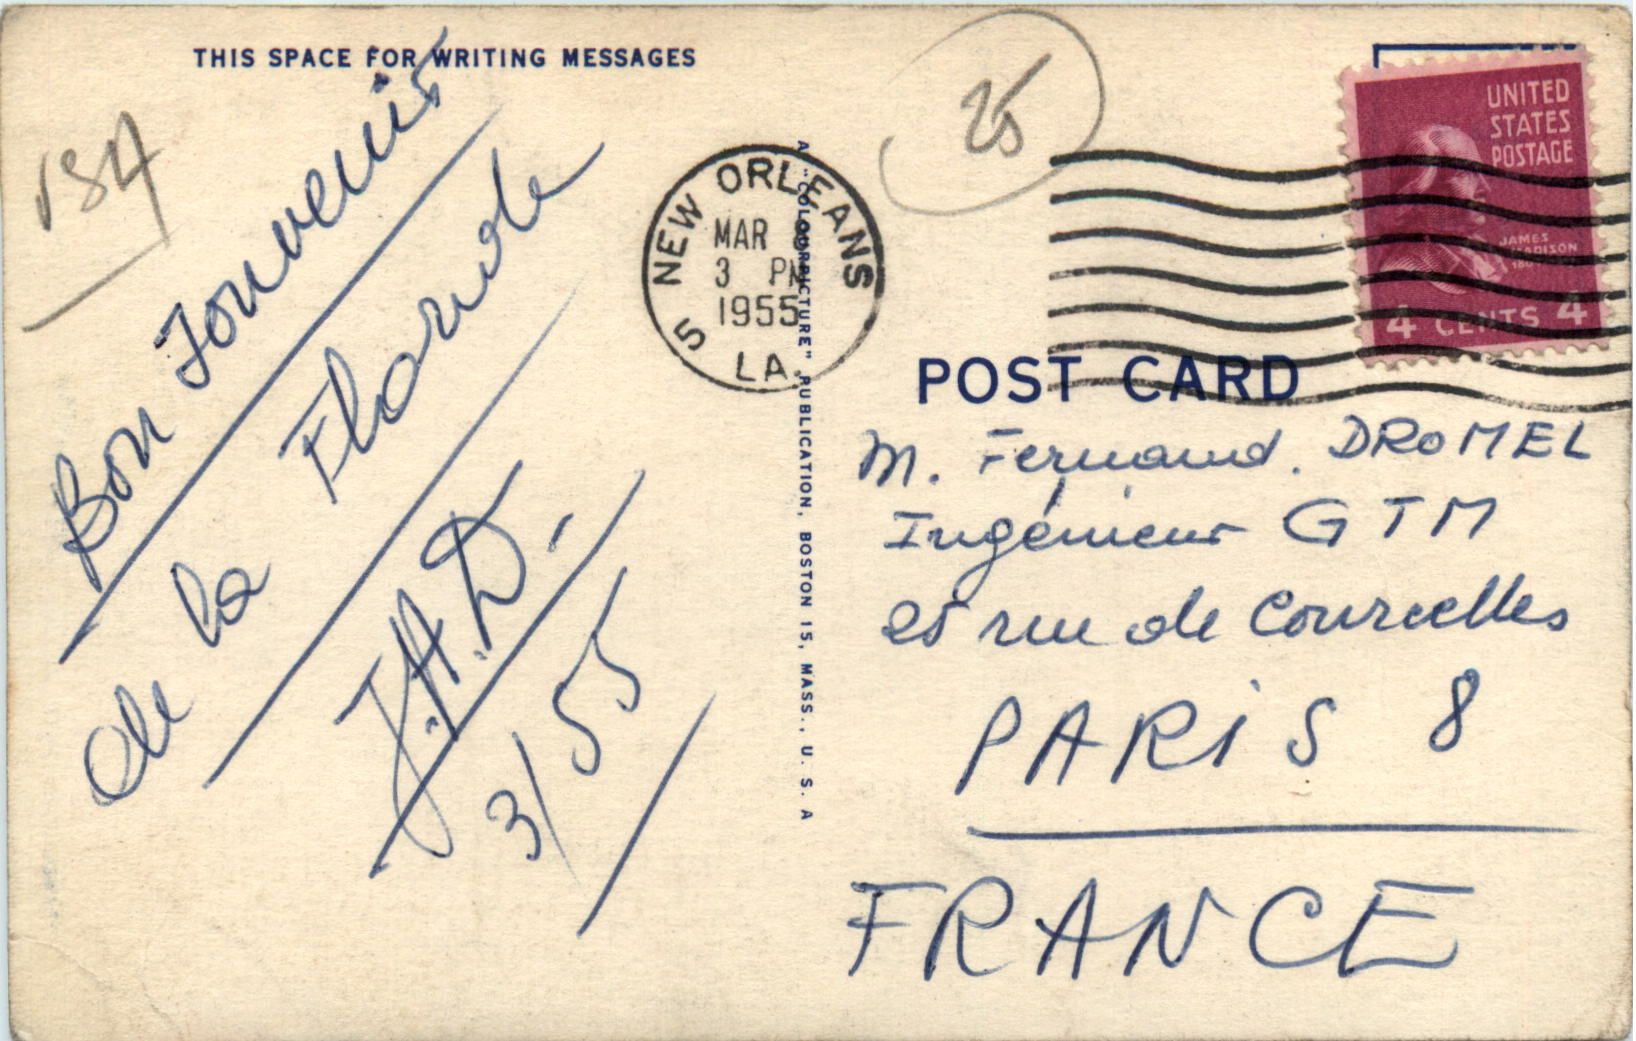 THIS SPACE FOR WRITING MESSAGES
USA
Bon Souvenir
de la Floride
J.A.D.
3/55
25
NEW ORLEANS
MAR
3 PM
1955
5 LA.
A "COLOURPICTURE" PUBLICATION, BOSTON 15, MASS., U. S. A
UNITED
STATES
POSTAGE
JAMES
MADISON
4 CENTS 4
POST CARD
M. Fernand. DROMEL
Ingénieur GTM
25 rue de Courcelles
PARIS 8
FRANCE